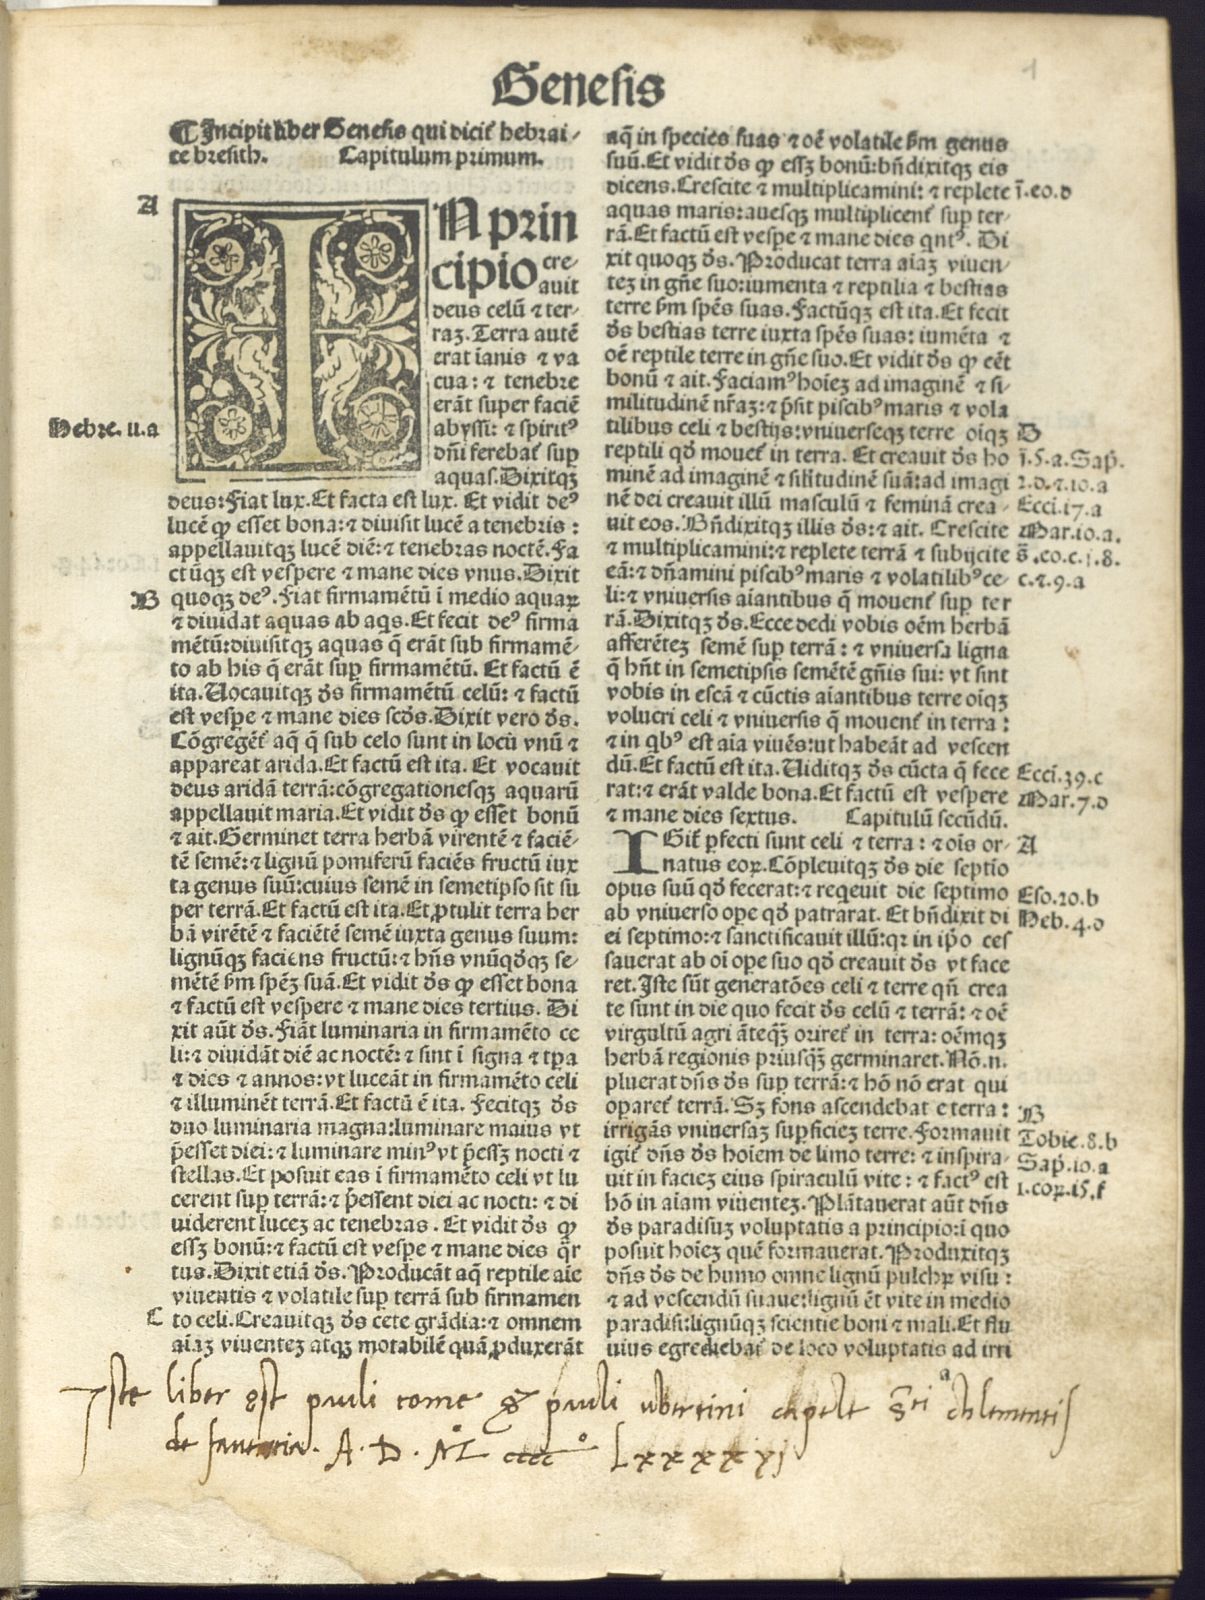 Genesis
1
¶ Incipit liber Genesis qui dicit᷑ hebrai-
ce bresith. Capitulum primum.
A
IN prin
cipio cre-
auit
deus celū ⁊ ter-
raꝫ. Terra autē
erat ianis ⁊ va
cua: ⁊ tenebre
erāt super faciē
Hebre. 11.a
abyssi: ⁊ spiritꝰ
dn̄i ferebat᷑ suꝑ
aquas. Dixitqꝫ
deus: Fiat lux. Et facta est lux. Et vidit deꝰ
lucē ꝙ esset bona: ⁊ diuisit lucē a tenebris:
appellauitqꝫ lucē diē: ⁊ tenebras noctē. Fa
ctūqꝫ est vespere ⁊ mane dies vnus. Dixit
B
quoqꝫ deꝰ. Fiat firmamētū i medio aquaꝝ
⁊ diuidat aquas ab aq̄s. Et fecit deꝰ firma
mētū: diuisitqꝫ aquas q̄ erāt sub firmamē-
to ab his q̄ erāt suꝑ firmamētū. Et factū ē
ita. Uocauitqꝫ ds̄ firmamētū celū: ⁊ factū
est vesꝑe ⁊ mane dies scd̄s. Dixit vero ds̄.
Cōgregēt᷑ aq̄ q̄ sub celo sunt in locū vnū ⁊
appareat arida. Et factū est ita. Et vocauit
deus aridā terrā: cōgregationesqꝫ aquarū
appellauit maria. Et vidit ds̄ ꝙ esset bonū
⁊ ait. Germinet terra herbā virentē ⁊ faciē-
tē semē: ⁊ lignū pomiferū faciēs fructū iux
ta genus suū: cuius semē in semetipso sit su
per terrā. Et factū est ita. Et ꝓtulit terra her
bā virētē ⁊ faciētē semē iuxta genus suum:
lignūqꝫ faciens fructū: ⁊ hn̄s vnūqd̄qꝫ se-
mētē sm̄ spēꝫ suā. Et vidit ds̄ ꝙ esset bona
⁊ factū est vespere ⁊ mane dies tertius. Di
xit aūt ds̄. Fiāt luminaria in firmamēto ce
li: ⁊ diuidāt diē ac noctē: ⁊ sint ī signa ⁊ tꝑa
⁊ dies ⁊ annos: vt luceāt in firmamēto celi
⁊ illuminēt terrā. Et factū ē ita. Fecitqꝫ ds̄
duo luminaria magna: luminare maius vt
p̄esset diei: ⁊ luminare minꝰ vt p̄essꝫ nocti ⁊
stellas. Et posuit eas i firmamēto celi vt lu
cerent suꝑ terrā: ⁊ p̄essent diei ac nocti: ⁊ di
uiderent luceꝫ ac tenebras. Et vidit ds̄ ꝙ
essꝫ bonū: ⁊ factū est vesꝑe ⁊ mane dies q̄r
tus. Dixit etiā ds̄. Producāt aq̄ reptile aīe
viuentis ⁊ volatile suꝑ terrā sub firmamen
C
to celi. Creauitqꝫ ds̄ cete grādia: ⁊ omnem
aīaꝫ viuenteꝫ atqꝫ motabilē quā ꝓduxerāt
aq̄ in species suas ⁊ oē volatile sm̄ genus
suū. Et vidit ds̄ ꝙ essꝫ bonū: bn̄dixitqꝫ eis
dicens. Crescite ⁊ multiplicamini: ⁊ replete
ī.eo.d
aquas maris: auesqꝫ multiplicent᷑ suꝑ ter-
rā. Et factū est vesꝑe ⁊ mane dies qntꝰ. Di
xit quoqꝫ ds̄. Producat terra aīaꝫ viuen-
teꝫ in gn̄e suo: iumenta ⁊ reptilia ⁊ bestias
terre sm̄ spēs suas. Factūqꝫ est ita. Et fecit
ds̄ bestias terre iuxta spēs suas: iumēta ⁊
oē reptile terre in gn̄e suo. Et vidit ds̄ ꝙ eēt
bonū ⁊ ait. Faciamꝰ hoīeꝫ ad imaginē ⁊ si-
militudinē nr̄aꝫ: ⁊ p̄sit piscibꝰ maris ⁊ vola
tilibus celi ⁊ bestijs: vniuerseqꝫ terre oīqꝫ
D
reptili qd̄ mouet᷑ in terra. Et creauit ds̄ ho
ī.5.a. Sap̄.
minē ad imaginē ⁊ silitudinē suā: ad imagi
2.d.⁊.10.a
nē dei creauit illū masculū ⁊ feminā crea-
Ecci.17.a
uit eos. Bn̄dixitqꝫ illis ds̄: ⁊ ait. Crescite
Mar.10.a.
⁊ multiplicamini: ⁊ replete terrā ⁊ subijcite
s̄.eo.c.j.8.
eā: ⁊ dn̄amini piscibꝰ maris ⁊ volatilibꝰ ce-
c.⁊.9.a
li: ⁊ vniuersis aiantibus q̄ mouent᷑ suꝑ ter
rā. Dixitqꝫ ds̄. Ecce dedi vobis oēm herbā
afferēteꝫ semē suꝑ terrā: ⁊ vniuersa ligna
q̄ hn̄t in semetipsis semētē gn̄is sui: vt sint
vobis in escā ⁊ cūctis aiantibus terre oīqꝫ
volucri celi ⁊ vniuersis q̄ mouent᷑ in terra:
⁊ in qbꝰ est aīa viuēs: ut habeāt ad vescen
dū. Et factū est ita. Uiditqꝫ ds̄ cūcta q̄ fece
Ecci.39.c
rat: ⁊ erāt valde bona. Et factū est vespere
Mar.7.d
⁊ mane dies sextus. Capitulū secūdū.
IGit᷑ ꝑfecti sunt celi ⁊ terra: ⁊ oīs or-
A
natus eoꝝ. Cōpleuitqꝫ ds̄ die septīo
opus suū qd̄ fecerat: ⁊ reqeuit die septimo
Exo.20.b
ab vniuerso oꝑe qd̄ patrarat. Et bn̄dixit di
Heb.4.d
ei septimo: ⁊ sanctificauit illū: qꝛ in ip̄o ces
sauerat ab oī oꝑe suo qd̄ creauit ds̄ vt face
ret. Iste sūt generatōes celi ⁊ terre qn̄ crea
te sunt in die quo fecit ds̄ celū ⁊ terrā: ⁊ oē
virgultū agri āteqꝫ̄ oriret᷑ in terra: oēmqꝫ
herbā regionis priusqꝫ̄ germinaret. Nō.n.
pluerat dn̄s ds̄ suꝑ terrā: ⁊ hō nō erat qui
oꝑaret᷑ terrā. Sꝫ fons ascendebat e terra:
B
irrigās vniuersaꝫ suꝑficieꝫ terre. Formauit
Tobie.8.b
igit᷑ dn̄s ds̄ hoīem de limo terre: ⁊ inspira-
Sap̄.10.a
uit in facieꝫ eius spiraculū vite: ⁊ factꝰ est
1.coꝝ.15.f
hō in aīam viuenteꝫ. Plātauerat aūt dn̄s
ds̄ paradisuꝫ voluptatis a principio: ī quo
posuit hoīeꝫ quē formauerat. Produxitqꝫ
dn̄s ds̄ de humo omne lignū pulchꝝ visu:
⁊ ad vescendū suaue: lignū ēt vite in medio
paradisi: lignūqꝫ scientie boni ⁊ mali. Et flu
uius egrediebat᷑ de loco voluptatis ad irri
Iste liber est pauli come & pauli ubertini capele Sti Clementis
de fauentia. A. D. Mº cccc º Lxxxxvj